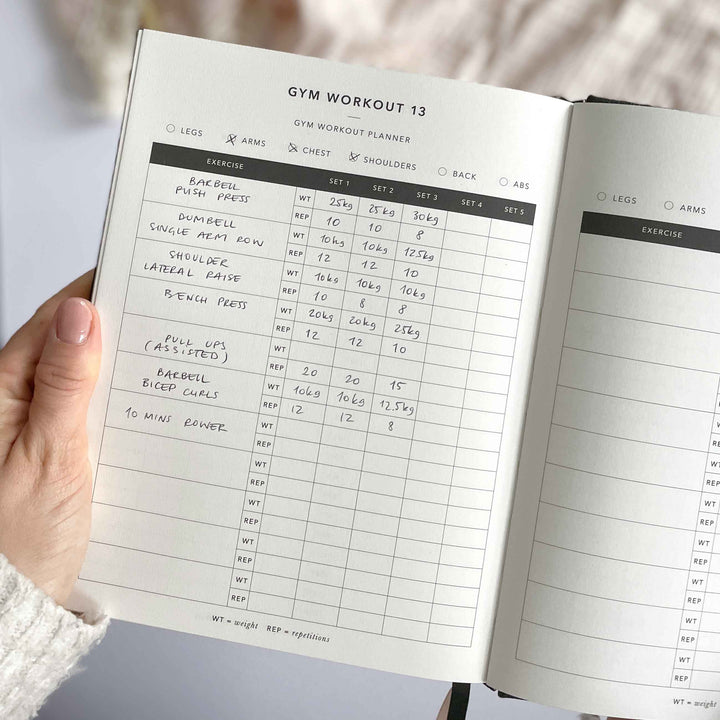 GYM WORKOUT 13
GYM WORKOUT PLANNER
LEGS ARMS CHEST SHOULDERS BACK ABS
EXERCISE SET 1 SET 2 SET 3 SET 4 SET 5
BARBELL PUSH PRESS WT 25kg 25kg 30kg
REP 10 10 8
DUMBELL SINGLE ARM ROW WT 10kg 10kg 12.5kg
REP 12 12 10
SHOULDER LATERAL RAISE WT 10kg 10kg 10kg
REP 10 8 8
BENCH PRESS WT 20kg 20kg 25kg
REP 12 12 10
PULL UPS (ASSISTED) WT
REP 20 20 15
BARBELL BICEP CURLS WT 10kg 10kg 12.5kg
REP 12 12 8
10 MINS ROWER WT
REP
WT
REP
WT
REP
WT
REP
WT = weight REP = repetitions
LEGS ARMS
EXERCISE
WT
REP
WT
REP
WT
REP
WT
REP
WT
REP
WT
REP
WT = weight